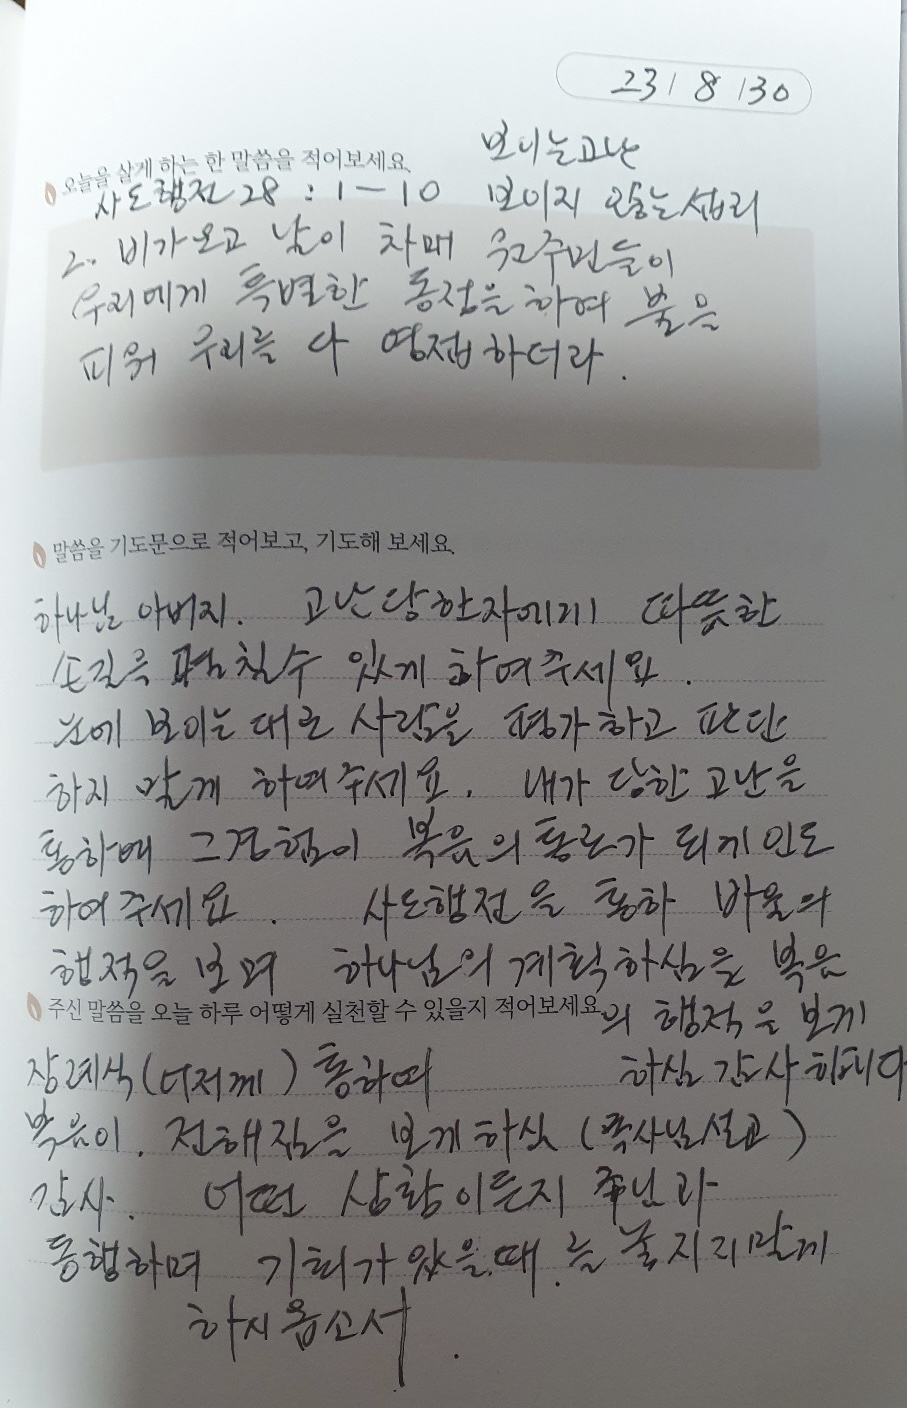 23 / 8 / 30
오늘을 살게 하는 한 말씀을 적어보세요.
보이는 고난
사도행전 28 : 1 - 10 보이지 않는 섭리
2. 비가 오고 날이 차매 원주민들이
우리에게 특별한 동정을 하여 불을
피워 우리를 다 영접하더라.
말씀을 기도문으로 적어보고, 기도해 보세요.
하나님 아버지. 고난당한자에게 따뜻한
손길을 펼칠수 있게 하여주세요.
눈에 보이는대로 사람을 평가하고 판단
하지 말게 하여주세요. 내가 당한 고난을
통하여 그경험이 복음의 통로가 되게 인도
하여주세요. 사도행전을 통하 바울의
행적을 보며 하나님의 계획하심을 복음
의 행적을 보게
하심 감사합니다
주신 말씀을 오늘 하루 어떻게 실천할 수 있을지 적어보세요.
장례식(어저께) 통하여
복음이. 전해짐을 보게하심 (목사님설교)
감사. 어떤 상황이든지 주님과
동행하며 기회가 있을때.를 놓치지말게
하시옵소서.